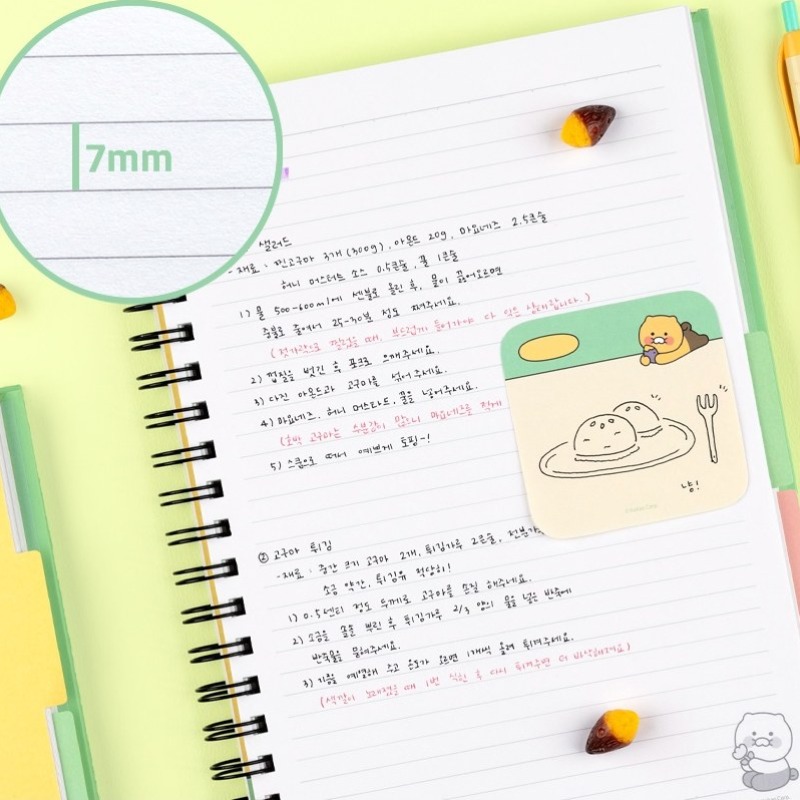 7mm
샐러드
- 재료 : 찐고구마 3개 (300g), 아몬드 20g, 마요네즈 2.5큰술
허니 머스터드 소스 0.5큰술, 꿀 1큰술
1) 물 500-600ml에 센불로 올린 후, 물이 끓어오르면
중불로 줄여서 25-30분 정도 쪄주세요.
(젓가락으로 찔렀을 때, 부드럽게 들어가야 다 익은 상태랍니다.)
2) 껍질을 벗긴 후 포크로 으깨주세요.
3) 다진 아몬드와 고구마를 섞어주세요.
4) 마요네즈, 허니 머스타드, 꿀을 넣어주세요.
(호박 고구마는 수분감이 많으니 마요네즈를 적게
5) 스쿱으로 떠서 예쁘게 토핑~!
냠!
② 고구마 튀김
- 재료 : 중간 크기 고구마 2개, 튀김가루 2큰술, 전분가
소금 약간, 튀김유 적당히!
1) 0.5센티 정도 두께로 고구마를 손질 해주세요.
2) 소금을 솔솔 뿌린 후 튀김가루 2/3 양의 물을 넣은 반죽에
반죽물을 묻혀주세요.
3) 기름을 예열해 주고 온도가 오르면 1개씩 올려 튀겨주세요.
(색깔이 노래졌을 때 1번 식힌 후 다시 튀겨주면 더 바삭해져요)